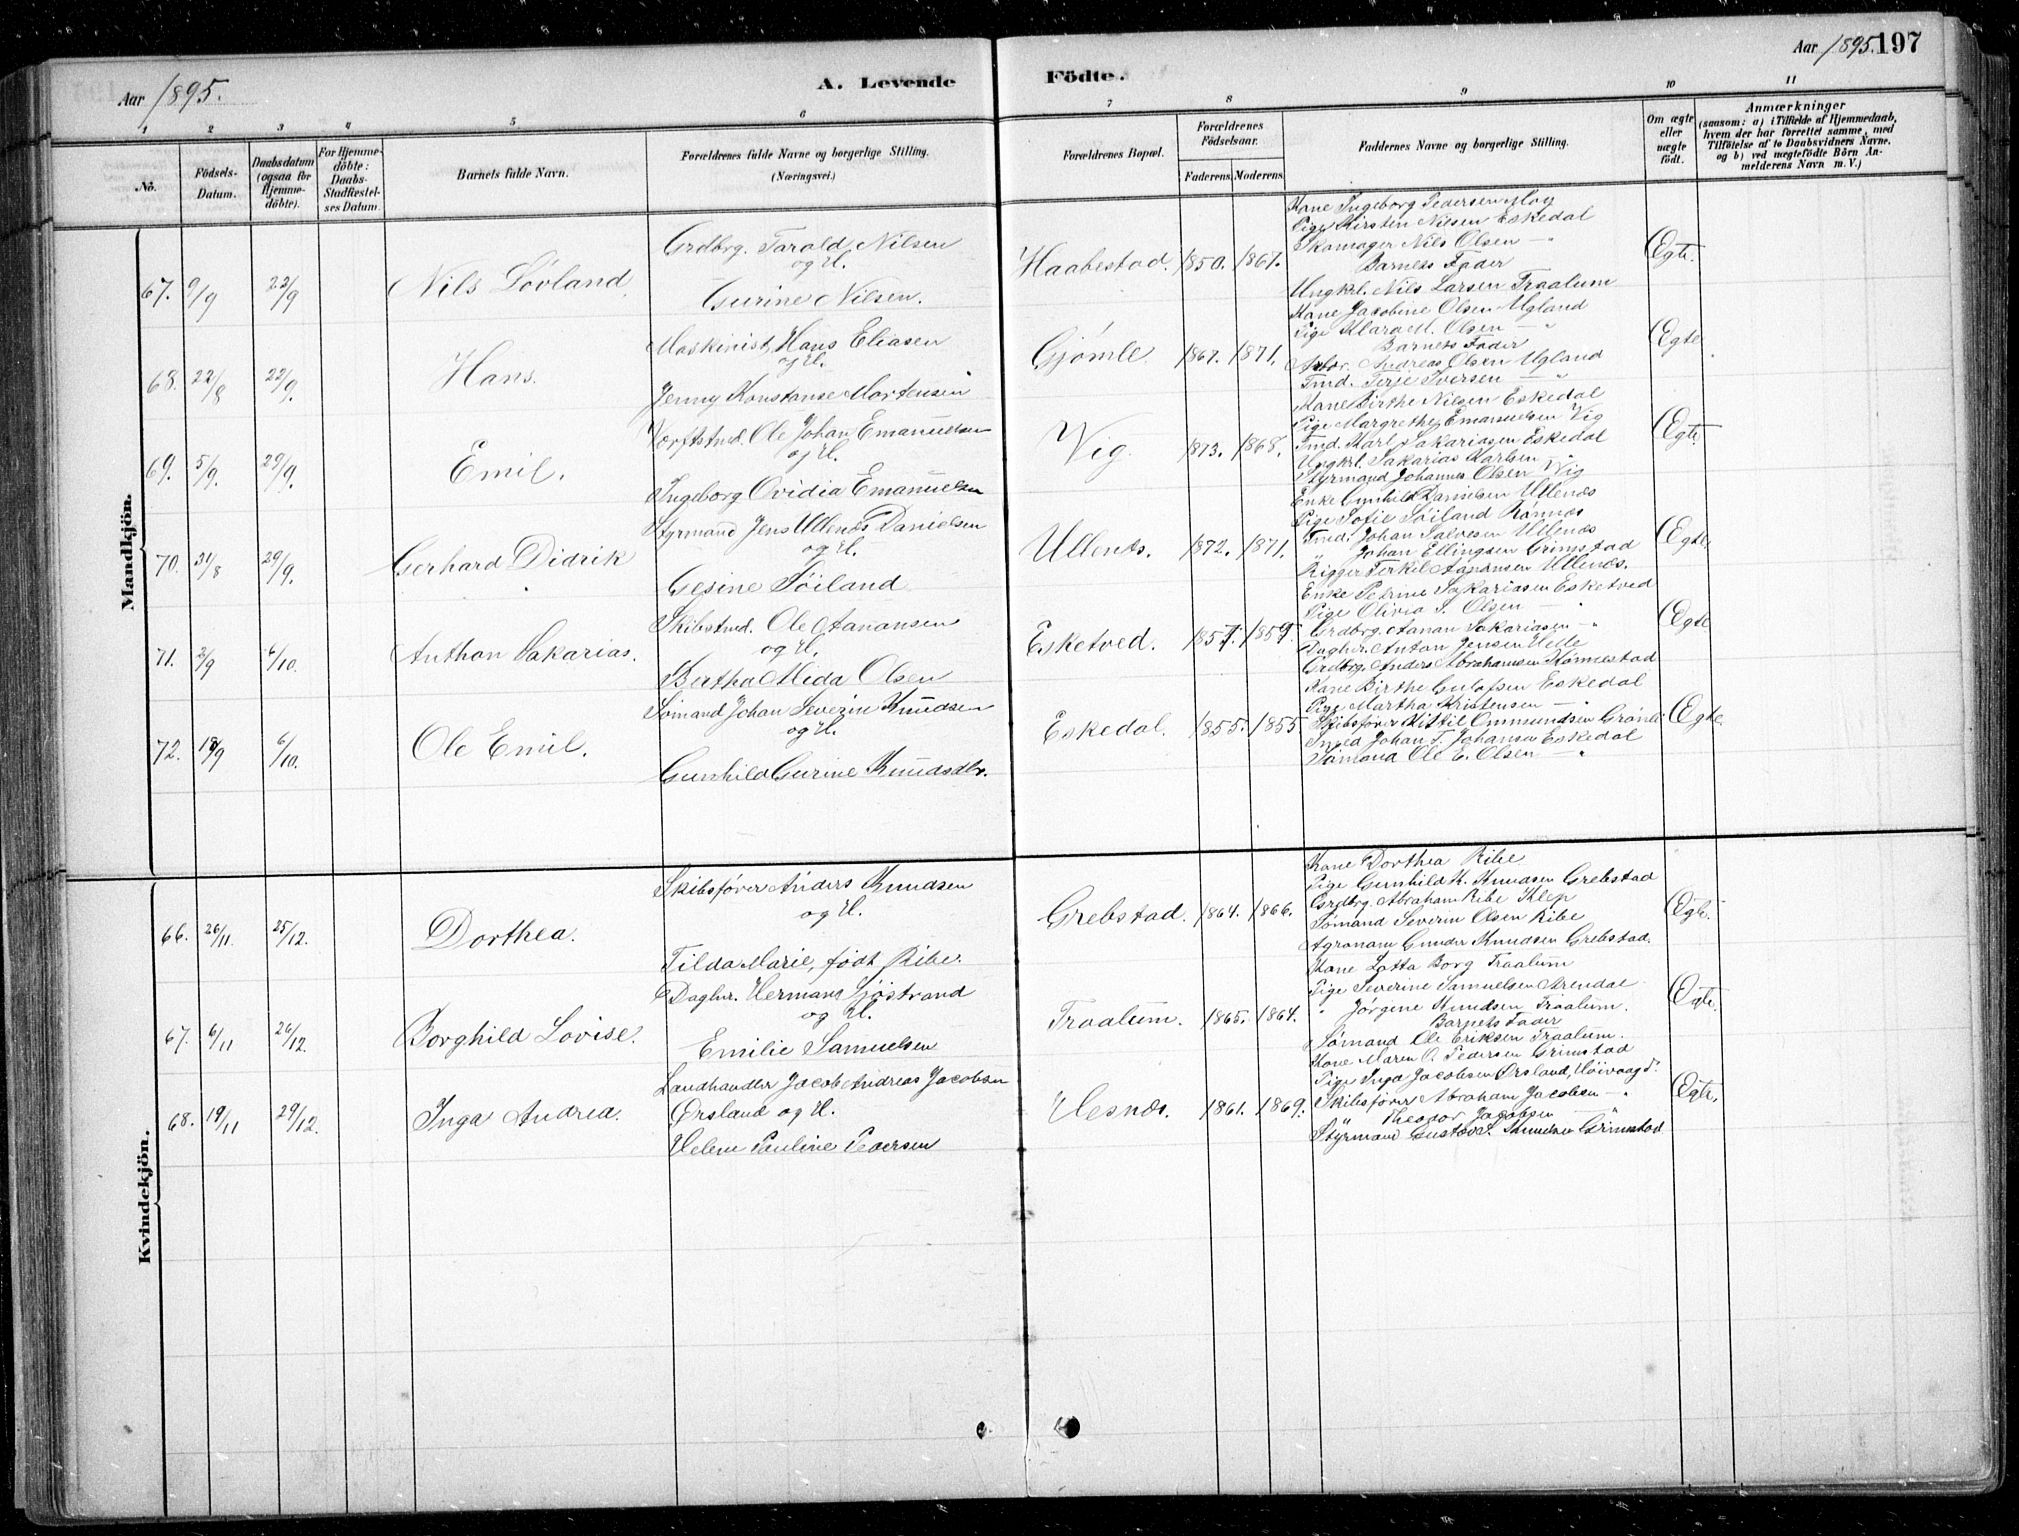 Aar 1895.
A. Levende Födte.
Aar 1895. 197
1 2 3 4 5 6 7 8 9 10 11
No.
Födsels-Datum.
Daabsdatum (ogsaa for Hjemmedöbte).
For Hjemmedöbte: Daabs-Stadfæstelses Datum.
Barnets fulde Navn.
Forældrenes fulde Navne og borgerlige Stilling.
(Næringsvei.)
Forældrenes Bopæl.
Forældrenes Födselsaar.
Faderens. Moderens.
Faddernes Navne og borgerlige Stilling.
Om ægte eller uægte födt.
Anmærkninger
(saasom: a) i Tilfælde af Hjemmedaab, hvem der har forrettet samme, med Tilföielse af to Daabsvidners Navne, og b) ved uægtefödte Börn Anmelderens Navn m. V.)
Mandkjön.
67. 9/9 22/9 Nils Lövland
Grdbrg. Tarald Nilsen
og H.
Gurine Nilsen.
Haabestad. 1850. 1867.
Kone Ingeborg Pedersen Moy
Pige Kirsten Nilsen Eskedal
Skomager Nils Olsen — "
Barnets Fader
Ungkl. Nils Larsen Traalum
Egte.
68. 22/8 22/9. Hans.
Maskinist Hans Eliasen
og H.
Jenny Konstanse Mortensen
Gjömle 1867. 1871.
Kone Jacobine Olsen Ugland
Pige Klara M. Olsen — "
Barnets Fader
Arbr. Andreas Olsen Ugland
Tmd. Terje Iversen — "
Egte
69. 5/9. 29/9. Emil.
Værftstmd. Ole Johan Emanuelsen
og H.
Ingeborg Ovidia Emanuelsen
Vig. 1873. 1868.
Kone Birthe Nilsen Eskedal
Pige Margrethe Emanuelsen Vig
Tmd. Karl Sakariasen Eskedal
Ungkrl. Sakarias Karlsen "
Styrmand Johannes Olsen Vig
Egte
70. 31/8 29/9. Gerhard Didrik
Styrmand Jens Ullenæs Danielsen
og H.
Gesine Söiland
Ullenæs. 1872. 1871.
Enke Gunhild Danielsen Ullenæs
Pige Sofie Söiland Rönnes
Tmd. Johan Salvesen Ullenæs
Johan Ellingsen Grimstad
Rigger Terkel Aanansen Ullenæs.
Egte
71. 2/9 6/10. Anthon Sakarias.
Skibstmd. Ole Aanansen
og H.
Bertha Alida Olsen
Esketved. 1857. 1859.
Enke Petrine Sakariasen Esketved
Pige Olivia S. Olsen — "
Grdbrg. Aanan Sakariasen — "
Daglnr. Anton Jensen Helle
Grdbrg. Anders Abrahamsen Könnestad
Egte
72. 18/9 6/10. Ole Emil.
Sömand Johan Severin Knudsen
og H.
Gunhild Gurine Knudsdtr.
Eskedal. 1855. 1855
Kone Birthe Gulofsen Eskedal
Pige Martha Kristensen — "
Skibsförer Kittil Ommundsen Grönli
Tmed Johan T. Johansen Eskedal
Sömand Ole E. Olsen — "
Egte.
Kvindekjön.
66. 26/11. 25/12. Dorthea.
Skibsförer Anders Knudsen
og H.
Tilda Marie, födt Ribe.
Grebstad. 1864. 1866.
Kone Dorthea Ribe
Pige Gunhild K. Knudsen Grebstad
Grdbrg. Abraham Ribe Klep
Sömand Severin Olsen Ribe
Agronom Gunder Knudsen Grebstad.
Egte.
67. 6/11 26/12. Borghild Lovise.
Daglnr. Herman Sjöstrand
og H.
Emilie Samuelsen
Traalum. 1865. 1864.
Kone Lotta Borg Traalum
Pige Severine Samuelsen Arendal
" Jörgine Knudsen Traalum.
Barnets Fader
Sömand Ole Eriksen Traalum.
Egte.
68. 19/11 29/12. Inga Andrea.
Landhandler Jacob Andreas Jacobsen
Örsland og H.
Helene Pauline Pedersen
Hesnæs. 1861. 1869.
Kone Maren O. Pedersen Grimstad
Pige Inga Jacobsen Örsland, Höivaag P.
Skibsförer Abraham Jacobsen — "
Theodor Jacobsen — "
Styrmand Gustav S. Knudsen Grimstad
Egte.